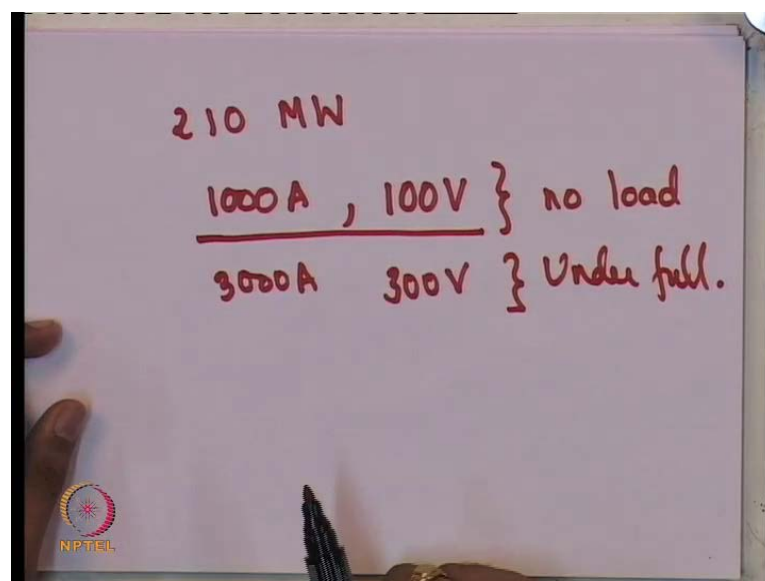 210 MW
1000A , 100V } no load
3000A 300V } Under full.
NPTEL